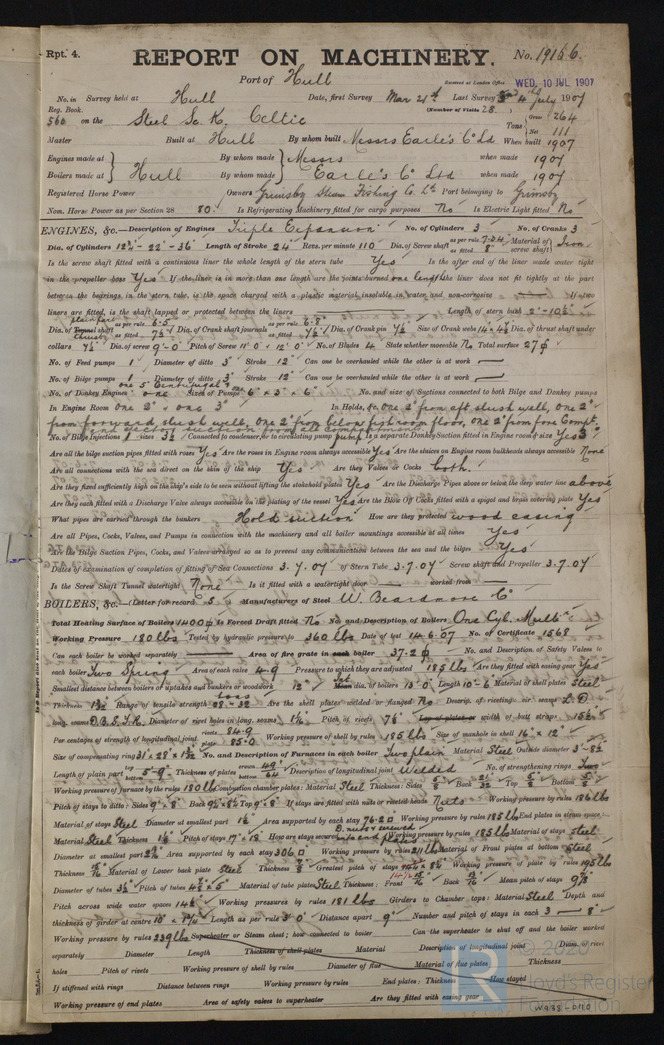 Rpt. 4.
REPORT ON MACHINERY. No. 19156
Port of Hull
Received at London Office WED. 10 JUL 1907
No. in Survey held at Hull Date, first Survey Mar 21st Last Survey 4th July 1907
Reg. Book. (Number of Visits 28)
560 on the Steel Sc. K. Celtic Tons Gross 264 Net 111
Master Built at Hull By whom built Messrs Earle's Co Ld When built 1907
Engines made at Hull By whom made Messrs Earle's Co Ltd when made 1907
Boilers made at By whom made when made 1907
Registered Horse Power Owners Grimsby Steam Fishing Co. Ld Port belonging to Grimsby
Nom. Horse Power as per Section 28 80. Is Refrigerating Machinery fitted for cargo purposes No Is Electric Light fitted No
ENGINES, &c.—Description of Engines Triple Expansion No. of Cylinders 3 No. of Cranks 3
Dia. of Cylinders 12½"-22"-36" Length of Stroke 24" Revs. per minute 110 Dia. of Screw shaft as per rule 7.54 as fitted 8" Material of screw shaft Iron
Is the screw shaft fitted with a continuous liner the whole length of the stern tube Yes Is the after end of the liner made water tight
in the propeller boss Yes If the liner is in more than one length are the joints burned one length If the liner does not fit tightly at the part
between the bearings in the stern tube, is the space charged with a plastic material insoluble in water and non-corrosive — If two
liners are fitted, is the shaft lapped or protected between the liners — Length of stern bush 2'-10½"
Dia. of Tunnel shaft as per rule 6.5 as fitted 7½ Dia. of Crank shaft journals as per rule 6.8 as fitted 7½" Dia. of Crank pin 7½" Size of Crank webs 14 × 4½ Dia. of thrust shaft under
collars 7½" Dia. of screw 9'-0" Pitch of Screw 11'0" & 12'0" No. of Blades 4 State whether moveable No Total surface 27 ϕ
No. of Feed pumps 1 Diameter of ditto 3" Stroke 12" Can one be overhauled while the other is at work —
No. of Bilge pumps 1 Diameter of ditto 3" Stroke 12" Can one be overhauled while the other is at work —
one 5" Centrifugal
No. of Donkey Engines one Sizes of Pumps 6" × 3" × 6" No. and size of Suctions connected to both Bilge and Donkey pumps
In Engine Room one 2" & one 3" In Holds, &c. one 2" from aft slush well, one 2"
from forward slush well, one 2" from below fishroom floor, one 2" from fore Compt.
No. of Bilge Injections 1 sizes 3½ Connected to condenser, or to circulating pump pump Is a separate Donkey Suction fitted in Engine room & size Yes 3"
Are all the bilge suction pipes fitted with roses Yes Are the roses in Engine room always accessible Yes Are the sluices on Engine room bulkheads always accessible None
Are all connections with the sea direct on the skin of the ship Yes Are they Valves or Cocks both.
Are they fixed sufficiently high on the ship's side to be seen without lifting the stokehold plates Yes Are the Discharge Pipes above or below the deep water line above
Are they each fitted with a Discharge Valve always accessible on the plating of the vessel Yes Are the Blow Off Cocks fitted with a spigot and brass covering plate Yes
What pipes are carried through the bunkers Hold suction How are they protected wood casing
Are all Pipes, Cocks, Valves, and Pumps in connection with the machinery and all boiler mountings accessible at all times Yes
Are the Bilge Suction Pipes, Cocks, and Valves arranged so as to prevent any communication between the sea and the bilges Yes
Dates of examination of completion of fitting of Sea Connections 3.7.07 of Stern Tube 3.7.07 Screw shaft and Propeller 3.7.07
Is the Screw Shaft Tunnel watertight None Is it fitted with a watertight door — worked from —
BOILERS, &c.—(Letter for record S) Manufacturers of Steel W. Beardmore & Co
Total Heating Surface of Boilers 1400 ϕ Is Forced Draft fitted No No. and Description of Boilers One Cyl. Mult
Working Pressure 180 lbs Tested by hydraulic pressure to 360 lbs Date of test 14.6.07 No. of Certificate 1568
Can each boiler be worked separately — Area of fire grate in each boiler 37.2 ϕ No. and Description of Safety Valves to
each boiler Two Spring Area of each valve 4.9 Pressure to which they are adjusted 185 lbs Are they fitted with easing gear Yes
Smallest distance between boilers or uptakes and bunkers or woodwork 12" Int. Mean dia. of boilers 13'0" Length 10'-6" Material of shell plates Steel
Thickness 1 3/32 Range of tensile strength 28-32 Are the shell plates welded or flanged No Descrip. of riveting: cir. seams L D
long. seams D.B.S.T.R. Diameter of rivet holes in long. seams 1 1/16" Pitch of rivets 7½" Lap of plates or width of butt straps 15½"
Per centages of strength of longitudinal joint rivets 84.9 plate 85.0 Working pressure of shell by rules 185 lbs Size of manhole in shell 16" × 12"
Size of compensating ring No. and Description of Furnaces in each boiler Two plain Material Steel Outside diameter 3'-8½"
Length of plain part top bottom 5'-9" Thickness of plates crown bottom 49/64 Description of longitudinal joint Welded No. of strengthening rings
Working pressure of furnace by the rules 180 lbs Combustion chamber plates: Material Steel Thickness: Sides 5/8 Back 21/32 Top 5/8 Bottom
Pitch of stays to ditto: Sides 9" × 8" Back 9½" × 8½ Top 9" × 8" If stays are fitted with nuts or riveted heads Nuts Working pressure by rules 186 lbs
Material of stays Steel Diameter at smallest part 1½ Area supported by each stay 76.2 Working pressure by rules 185 lbs End plates in steam space:
Material Steel Thickness Pitch of stays 17" × 18" How are stays secured D. nuts & screwed into end plates Working pressure by rules 185 lbs Material of stays Steel
Diameter at smallest part Area supported by each stay 306 Working pressure by rules Material of Front plates at bottom Steel
Thickness Material of Lower back plate Steel Thickness Greatest pitch of stays Working pressure of plate by rules 195 lbs
Diameter of tubes 3½" Pitch of tubes Material of tube plates Steel Thickness: Front Back Mean pitch of stays
Pitch across wide water spaces 14½" Working pressures by rules 181 lbs Girders to Chamber tops: Material Steel Depth and
thickness of girder at centre 10" × 1¾" Length as per rule 3'0" Distance apart 9" Number and pitch of stays in each 3 — 8"
Working pressure by rules 239 lbs Superheater or Steam chest; how connected to boiler Can the superheater be shut off and the boiler worked
separately Diameter Length Thickness of shell plates Material Description of longitudinal joint Diam. of rivet
holes Pitch of rivets Working pressure of shell by rules Diameter of flue Material of flue plates Thickness
If stiffened with rings Distance between rings Working pressure by rules End plates: Thickness How stayed
Working pressure of end plates Area of safety valves to superheater Are they fitted with easing gear
© 2020
Lloyd's Register
Foundation
W938-0110